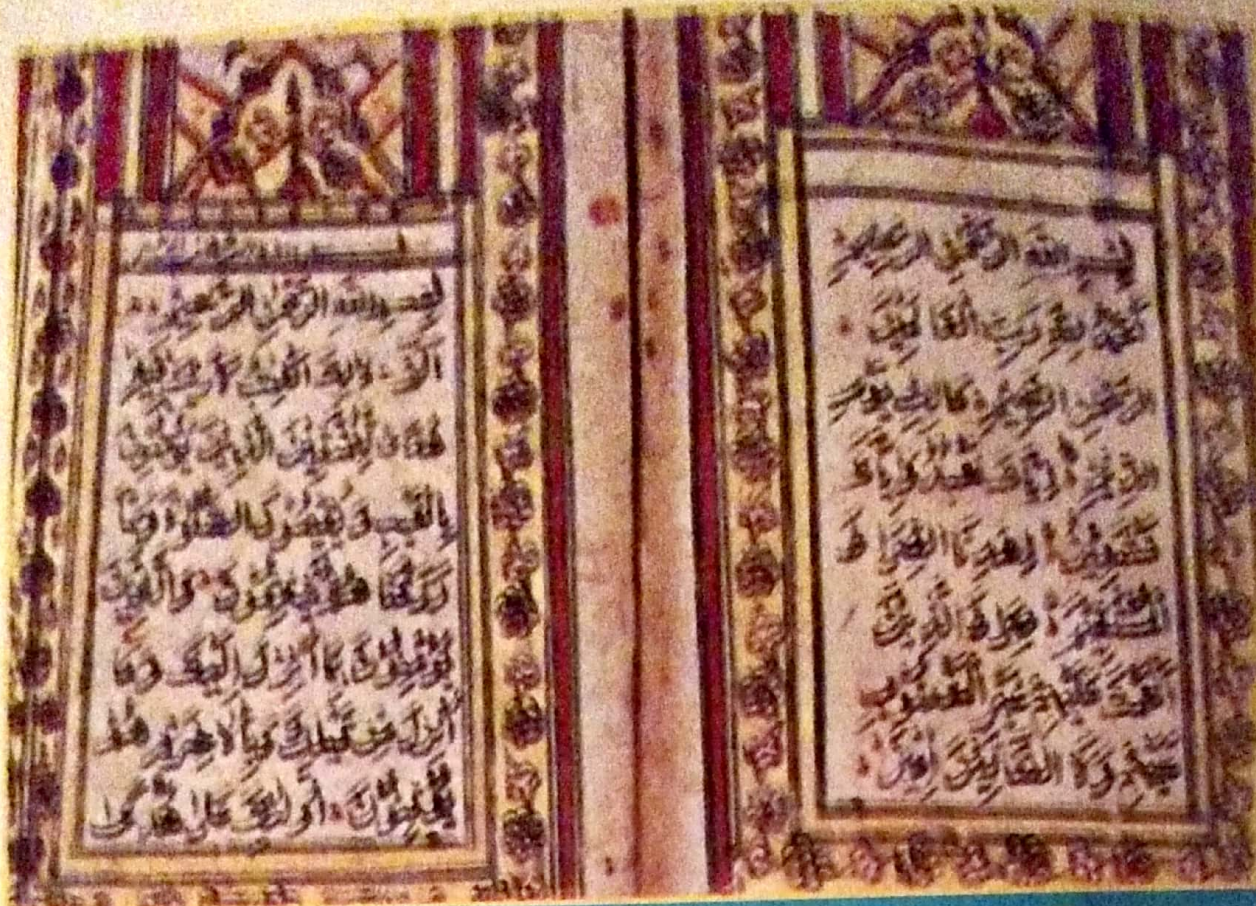 بِسْمِ اللهِ الرَّحْمٰنِ الرَّحِيمِ
الحمد لِلّٰهِ رَبِّ الْعَالَمِينَ
الرَّحْمٰنِ الرَّحِيمِ مَالِكِ يَوْمِ
الدِّينِ إِيَّاكَ نَعْبُدُ وَإِيَّاكَ
نَسْتَعِينُ اِهْدِنَا الصِّرَاطَ
الْمُسْتَقِيمَ صِرَاطَ الَّذِينَ
أَنْعَمْتَ عَلَيْهِمْ غَيْرِ الْمَغْضُوبِ
عَلَيْهِمْ وَلَا الضَّالِّينَ اٰمِينَ
بِسْمِ اللهِ الرَّحْمٰنِ الرَّحِيمِ
الٓمّٓ ذٰلِكَ الْكِتٰبُ لَا رَيْبَ فِيهِ
هُدًى لِلْمُتَّقِينَ الَّذِينَ يُؤْمِنُونَ
بِالْغَيْبِ وَيُقِيمُونَ الصَّلٰوةَ وَمِمَّا
رَزَقْنَا هُمْ يُنْفِقُونَ وَالَّذِينَ
يُؤْمِنُونَ بِمَا أُنْزِلَ إِلَيْكَ وَمَا
أُنْزِلَ مِنْ قَبْلِكَ وَبِالْاٰخِرَةِ هُمْ
يُوقِنُونَ أُولٰئِكَ عَلٰى هُدًى